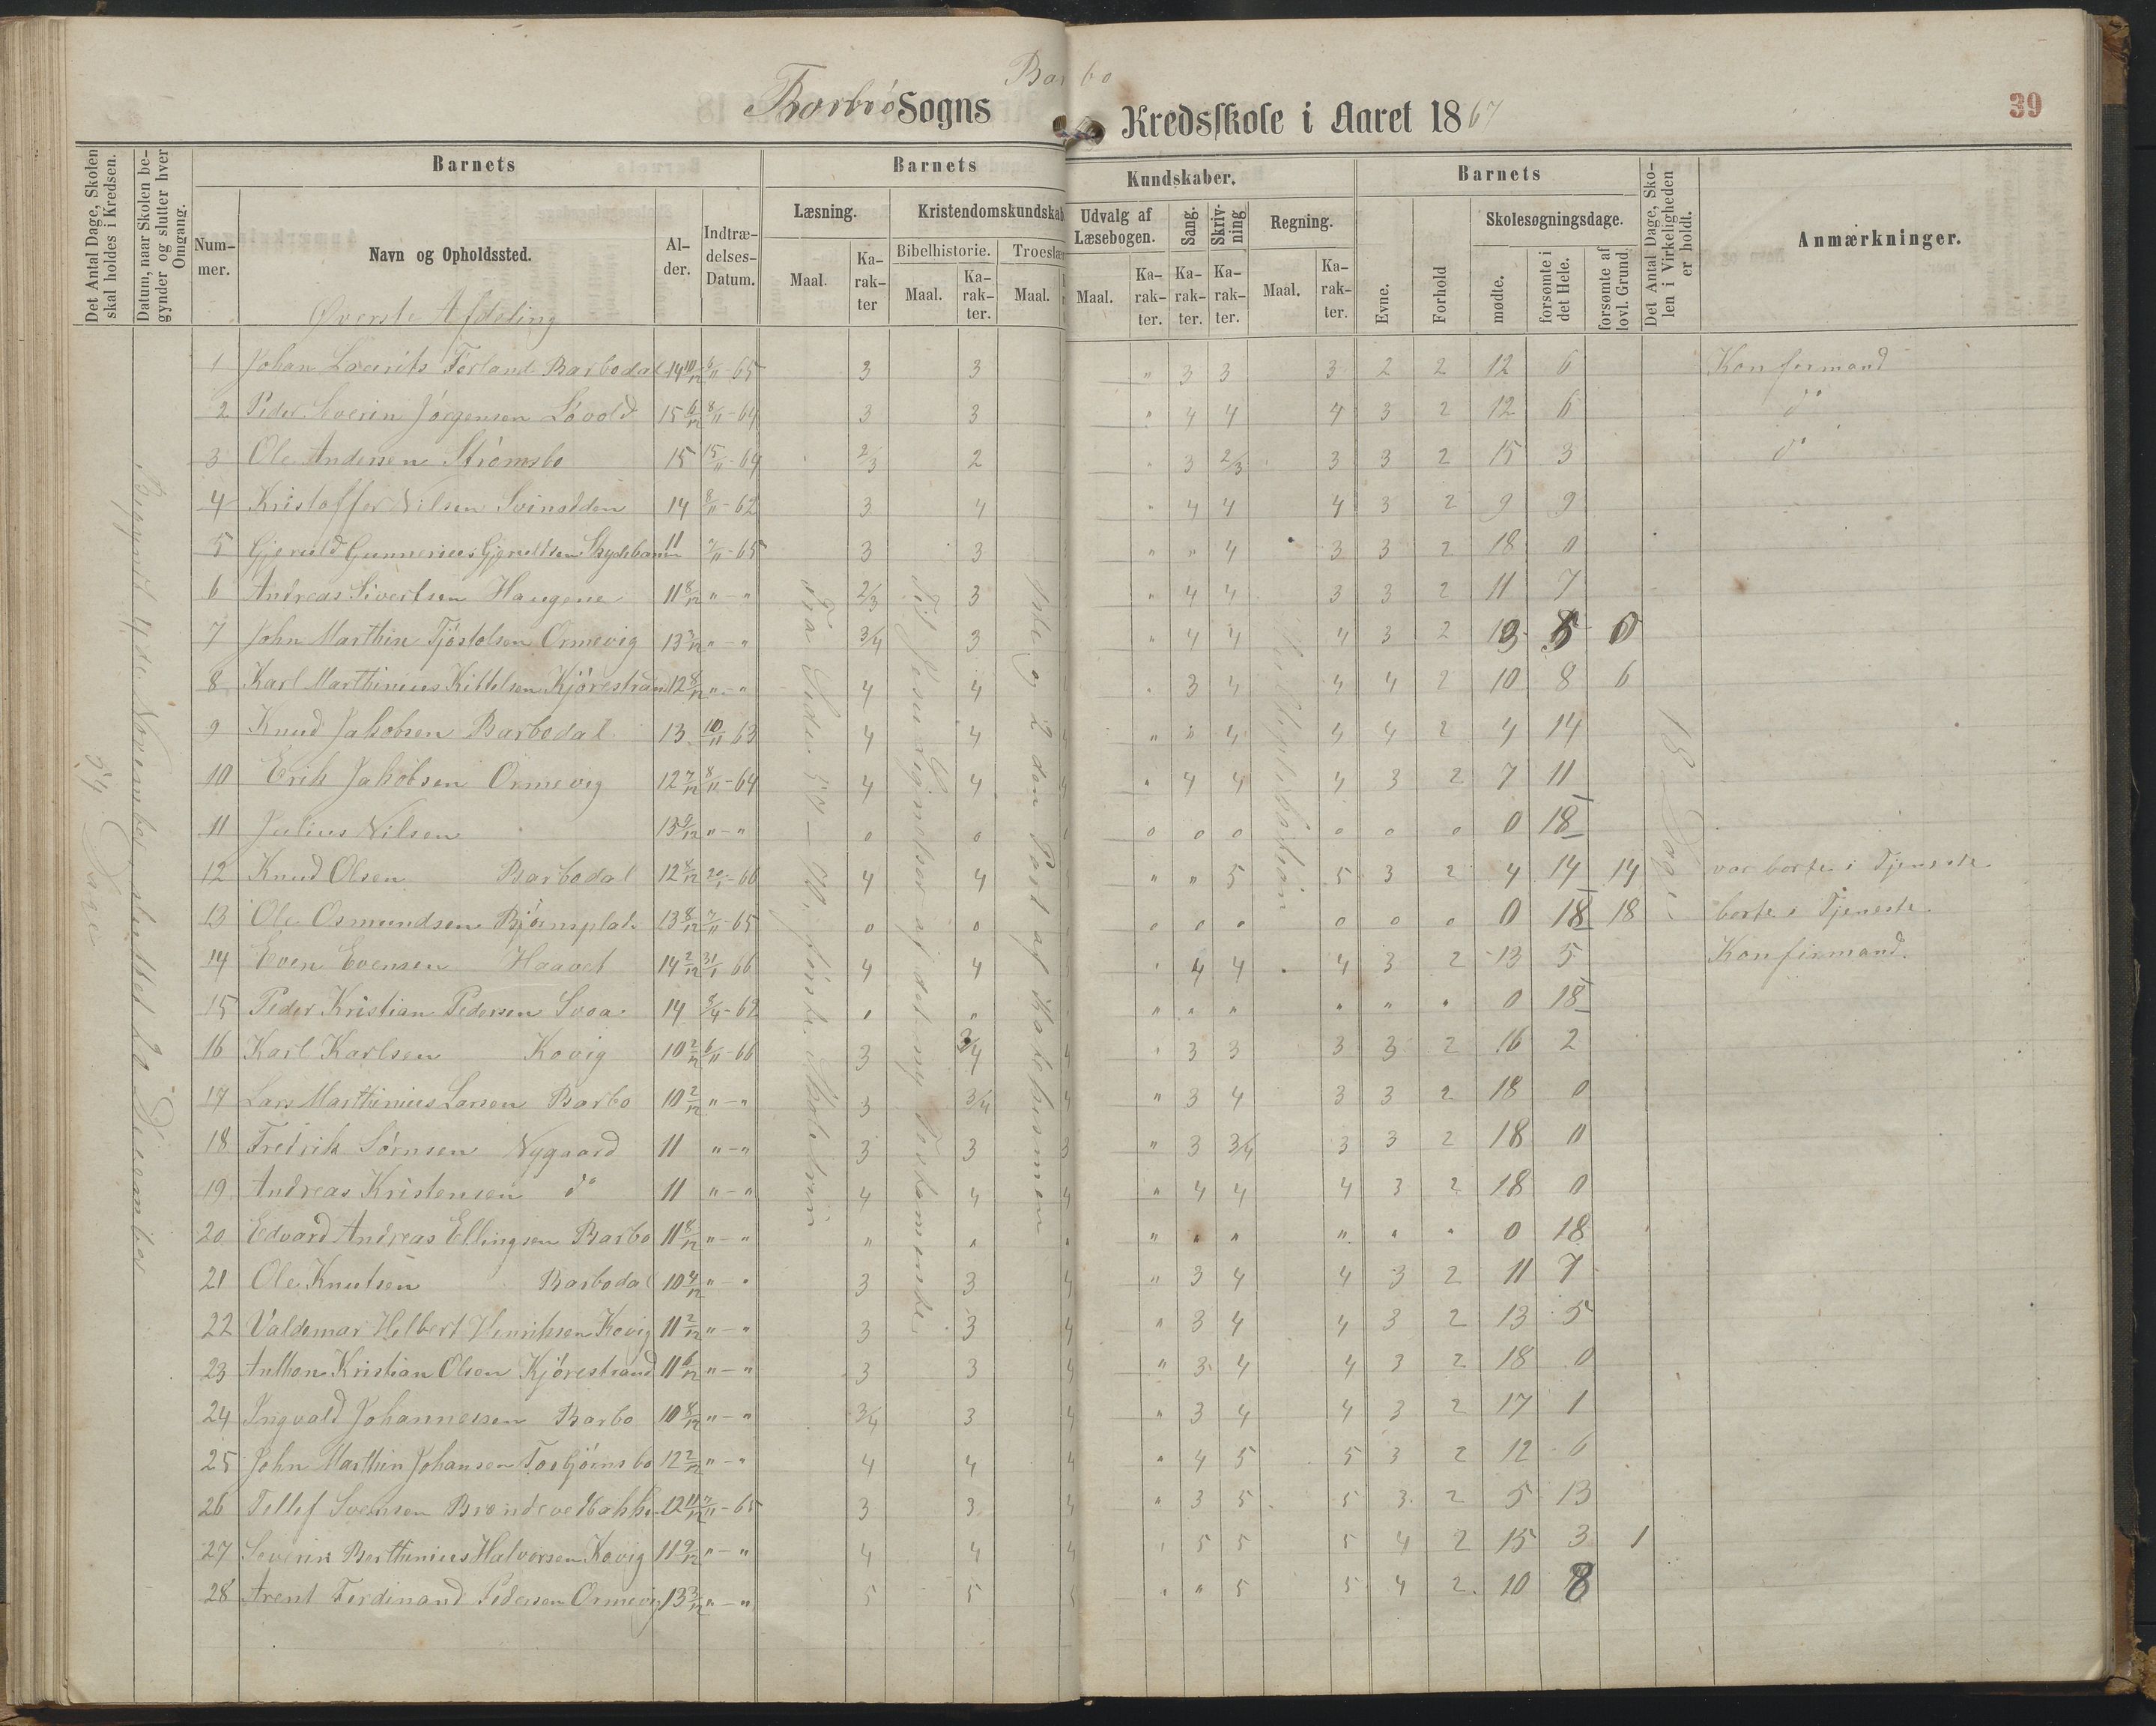 Barbo
Barbo Sogns Kredsskole i Aaret 1867
39
Det Antal Dage, Skolen skal holdes i Kredsen.
Datum, naar Skolen begynder og slutter hver Omgang.
Barnets Barnets Kundskaber. Barnets
Nummer. Navn og Opholdssted. Alder. Indtrædelses-Datum.
Læsning. Kristendomskundskab
Maal. Karakter Bibelhistorie. Maal. Karakter. Troeslær Maal.
Udvalg af Læsebogen. Maal. Karakter. Sang. Karakter. Skrivning Karakter. Regning. Maal. Karakter.
Evne. Forhold Skolesøgningsdage. mødte. forsømte i det Hele. forsømte af lovl. Grund.
Det Antal Dage, Skolen i Virkeligheden er holdt.
Anmærkninger.
Øverste Afdeling
54 Dage
Begyndt 4de November, sluttet 20 December
18 Dage
1 Johan Laurits Førland Barbodal 14 10/12 6/11-65 3 3 " 3 3 3 2 2 12 6 Konfirmand
2 Peder Severin Jörgensen Lövold 15 6/12 8/11-64 3 3 " 4 4 4 3 2 12 6 do
3 Ole Andersen Strömsbo 15 15/11-64 2/3 2 " 3 2/3 3 3 2 15 3 do
4 Kristoffer Nilsen Svinodden 14 8/11-62 3 4 " 4 4 4 3 2 9 9
5 Gjeruld Gunnerius Gjeruldsen Skydebanen 11 7/11-65 3 3 " " 4 3 3 2 18 0
6 Andreas Sivertsen Haugene 11 8/12 "-" 2/3 3 " 4 4 3 3 2 11 7
7 John Marthin Tjöstolsen Ormevig 13 "-" 3/4 3 " 4 4 4 3 2 13 5 0
8 Karl Marthinius Kittelsen Kjörestrand 12 8/12 "-" 4 4 " 3 4 4 4 2 10 8 6
9 Knud Jakobsen Barbodal 13 10/11 63 4 4 " " 4 4 4 2 4 14
10 Erik Jakobsen Ormevig 12 7/12 8/11-64 4 4 " 4 4 4 3 2 7 11
11 Julius Nilsen 13 9/12 "-" 0 0 0 0 0 0 0 0 0 18
12 Knud Olsen Barbodal 12 8/12 20/1-66 4 4 " " 5 5 3 2 4 14 14 var borte i Tjeneste
13 Ole Osmundsen Björnsplats 13 8/12 7/11-65 0 0 0 0 0 0 0 0 0 18 18 borte i Tjeneste
14 Even Evensen Haavet 14 2/12 31/1 66 4 4 " 4 4 4 3 2 13 5 Konfirmand.
15 Peder Kristian Pedersen Svoa 14 3/4-62 " " " " " " " " 0 18
16 Karl Karlsen Kovig 10 2/12 6/11-66 3 3/4 " 3 3 3 3 2 16 2
17 Lars Marthinius Larsen Barbo 10 2/12 "-" 3 3/4 " 3 4 3 3 2 18 0
18 Fredrik Sörnsen Nygaard 11 "-" 3 3 3 " 3 3/4 3 3 2 18 0
19 Andreas Kristensen do 11 "-" 4 4 4 " 4 4 4 3 2 18 0
20 Edvard Andreas Ellingsen Barbo 11 8/12 "-" " " " " " " " " " 0 18
21 Ole Knutsen Barbodal 10 4/12 "-" 3 3 4 " 3 4 4 3 2 11 7
22 Valdemar Helbert Henriksen Kovig 11 2/12 "-" 3 3 4 " 3 4 4 3 2 13 5
23 Anthon Kristian Olsen Kjörestrand 11 6/12 "-" 3 3 4 " 3 4 4 3 2 18 0
24 Ingvald Johannessen Barbo 10 8/12 "-" 3/4 3 4 " 3 4 4 3 2 17 1
25 John Marthin Johansen Torbjörnsbo 12 2/12 "-" 4 4 4 " 4 5 5 3 2 12 6
26 Tellef Svensen 12 11/12 7/11-65 3 3 4 " 3 5 5 3 2 5 13
27 Severin Berthinius Halvorsen Kovig 11 9/12 "-" 4 4 4 " 5 5 5 4 2 15 3 1
28 Arent Ferdinand Pedersen Ormevig 13 3/12 "-" 5 5 5 " " 5 5 4 2 10 8